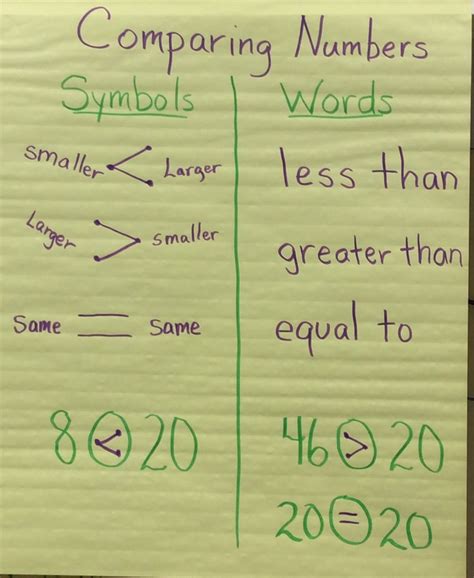 Comparing Numbers
Symbols Words
smaller < Larger less than
Larger > smaller greater than
Same = Same equal to
8 < 20 46 > 20
20 = 20